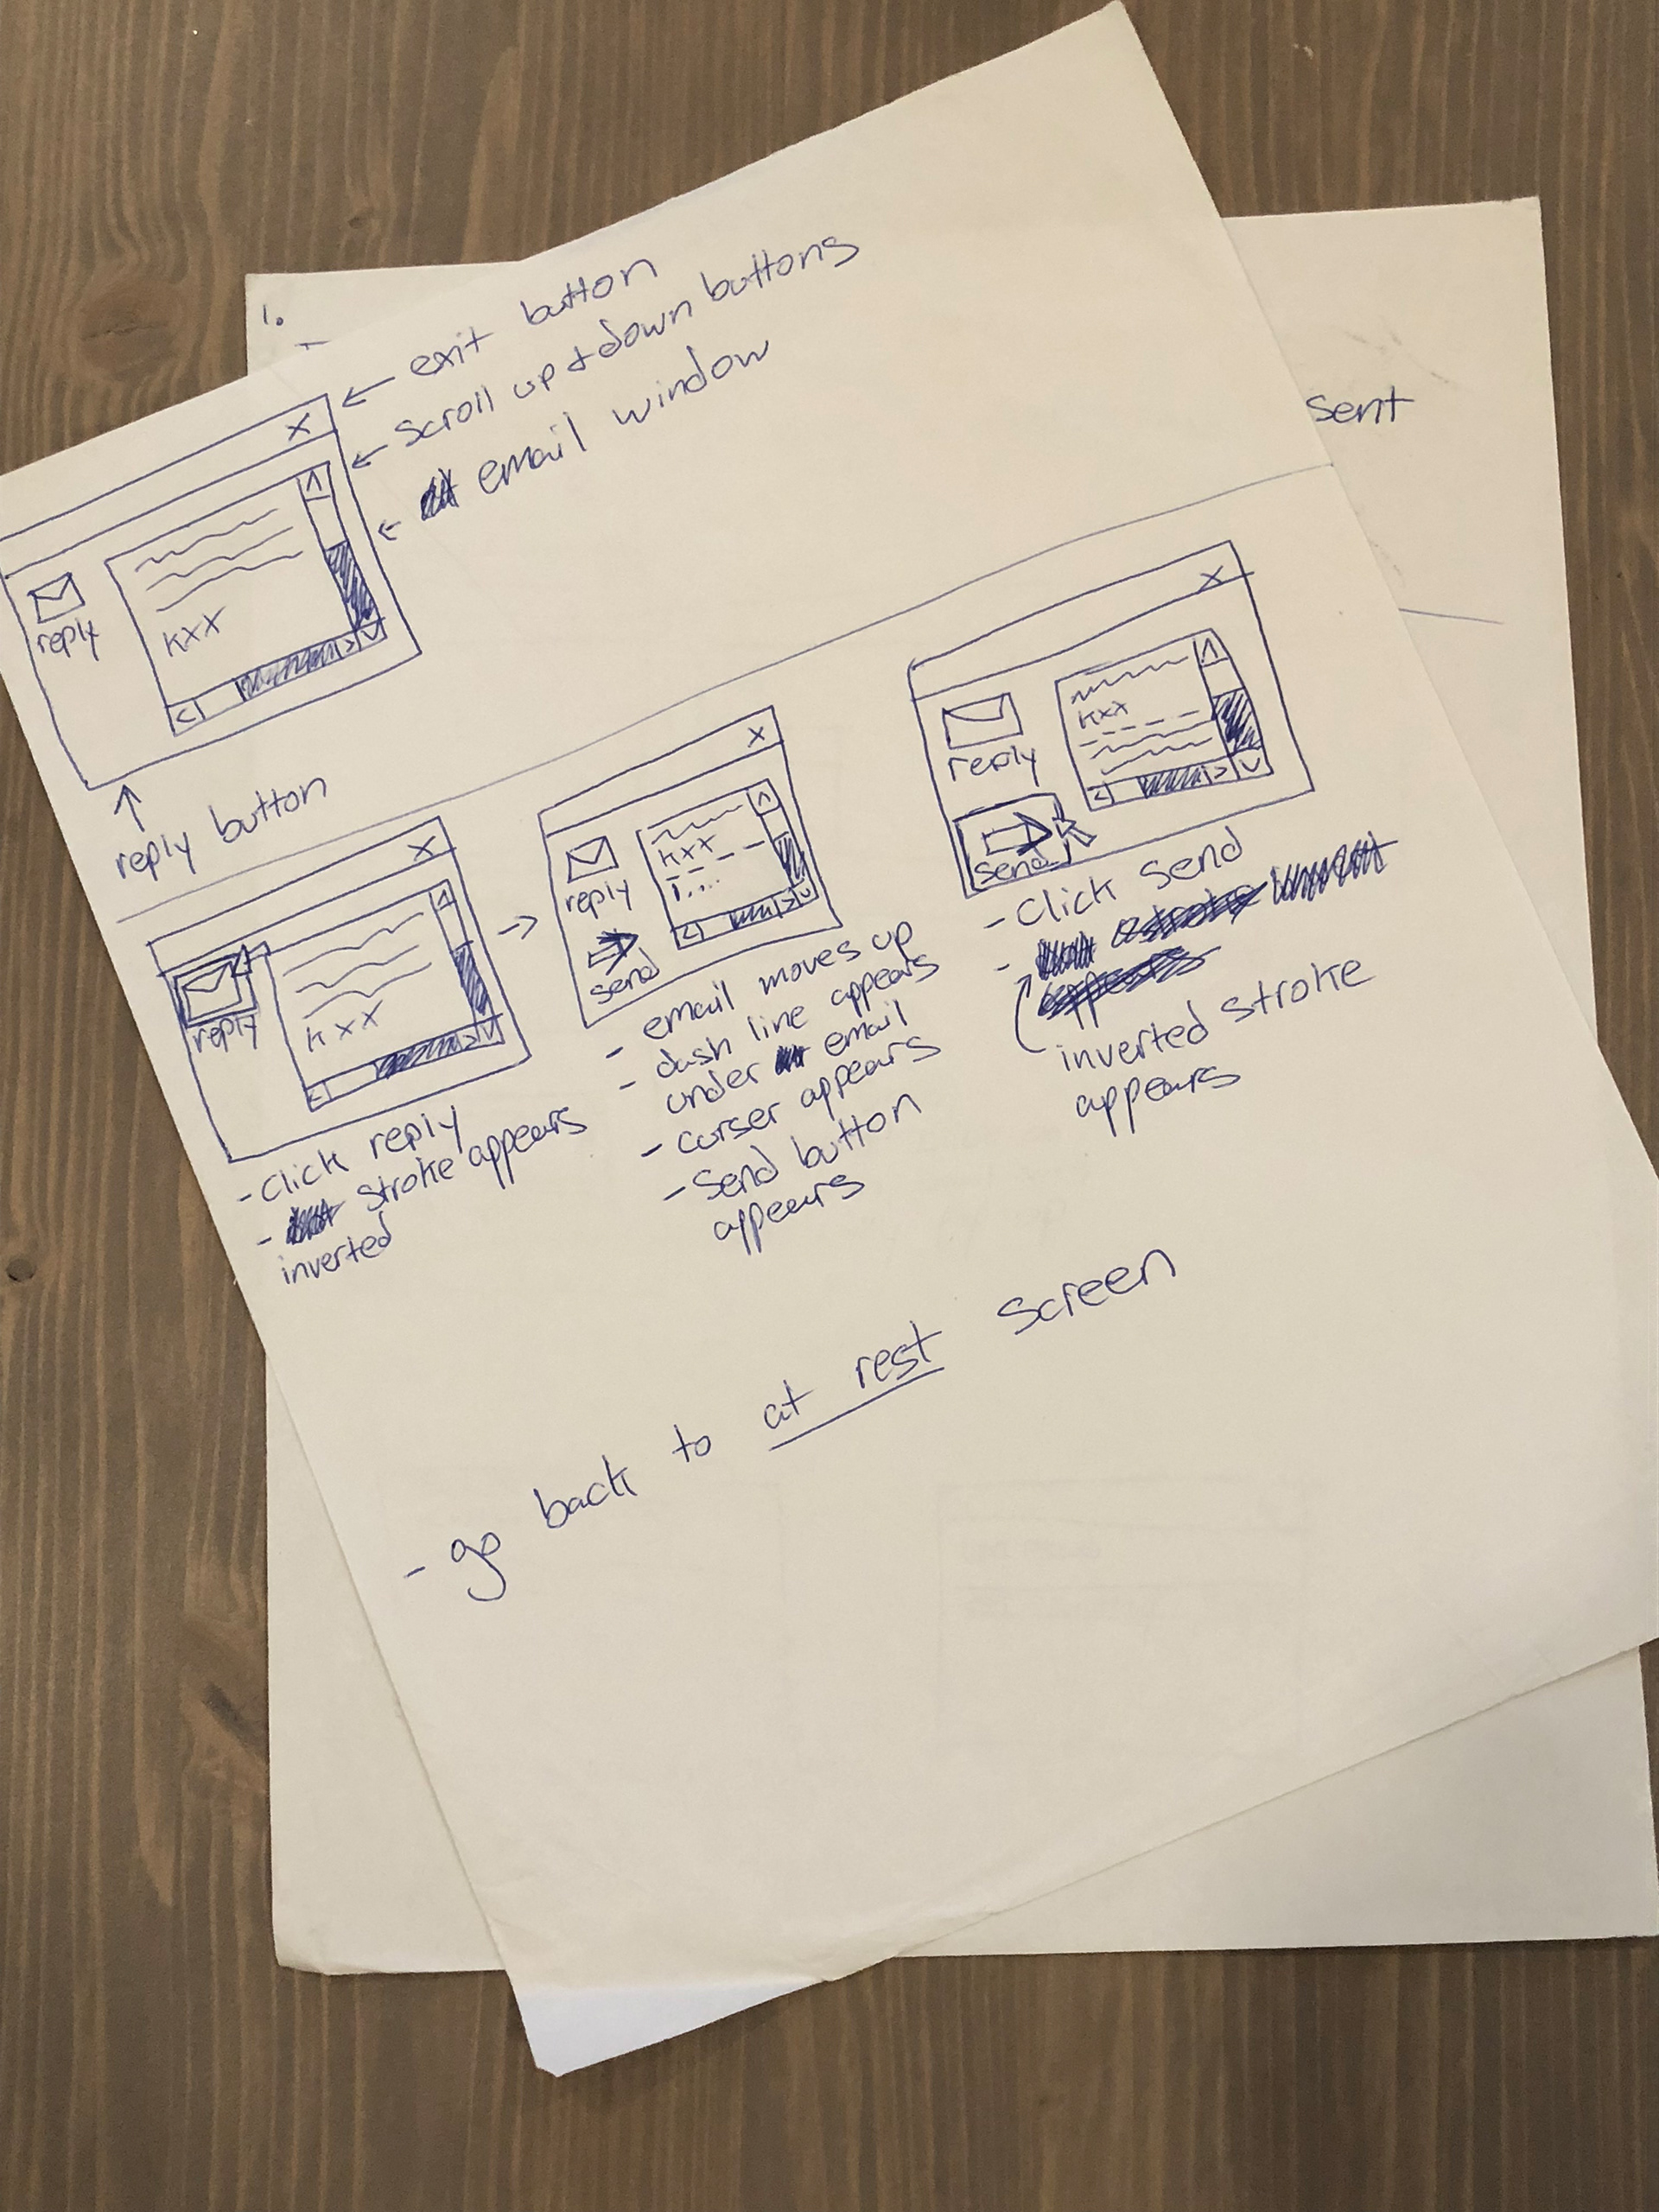 1.
← exit button
← scroll up + down buttons
← email window
X
reply
kxx
↑
reply button
sent
X
reply
kxx
- Click reply
- stroke appears
inverted
→
X
reply
send
kxx
- email moves up
- dash line appears
under email
- curser appears
- Send button
appears
X
reply
send
kxx
- Click Send
-
inverted stroke
appears
- go back to at rest screen